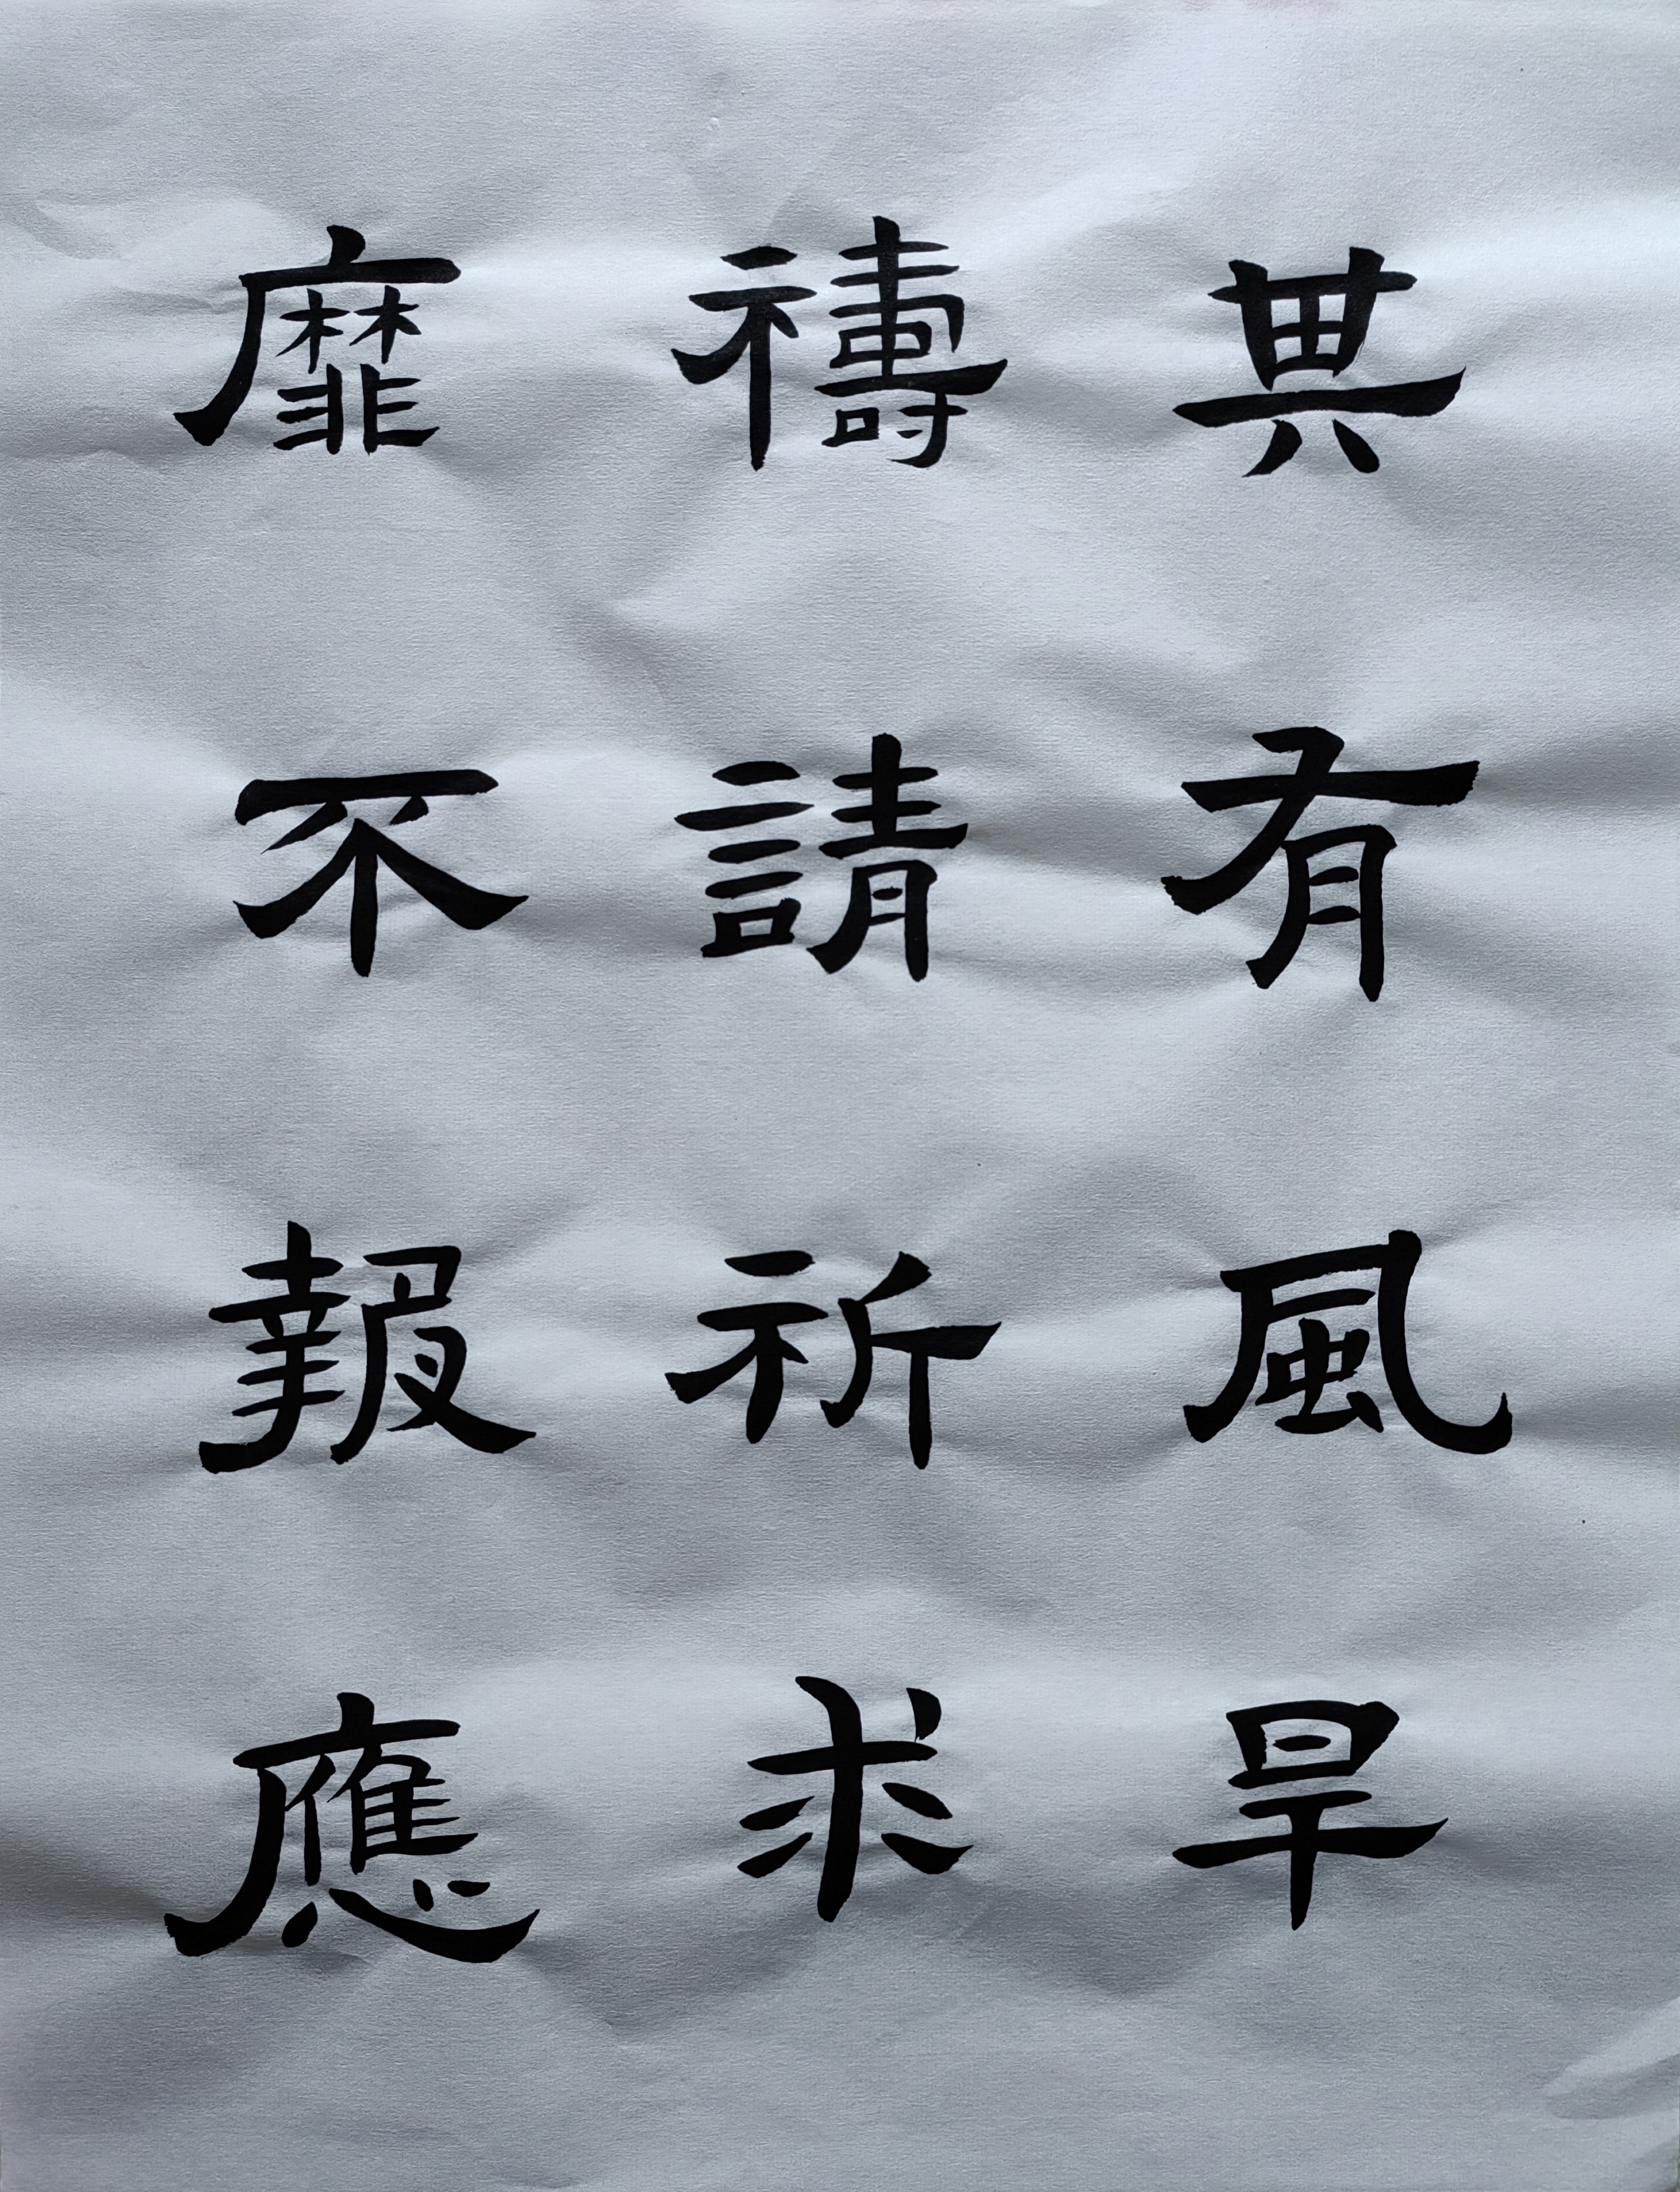 其有風旱
禱請祈求
靡不報應